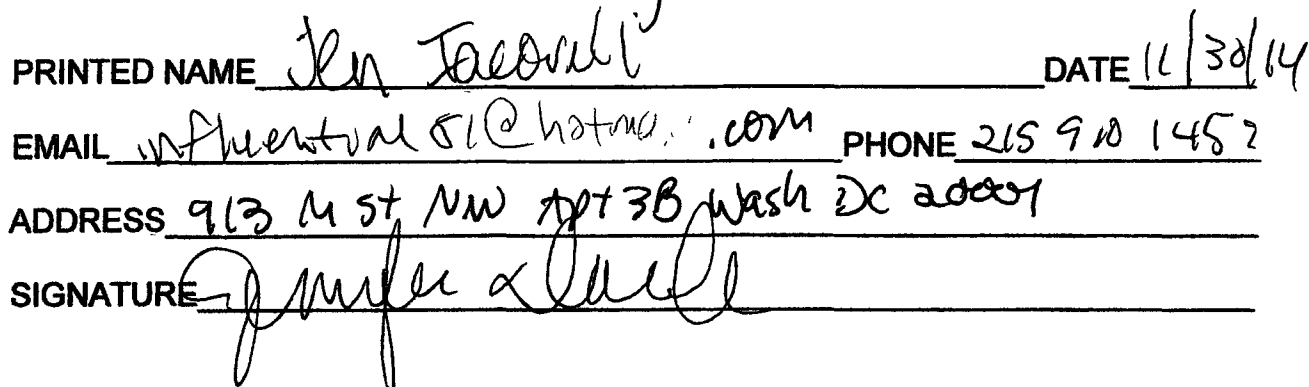 PRINTED NAME Jen Iacovelli DATE 11/30/14
EMAIL influential81@hotmai.com PHONE 215 910 1452
ADDRESS 913 M St NW Apt 3B Wash DC 20001
SIGNATURE Jennifer